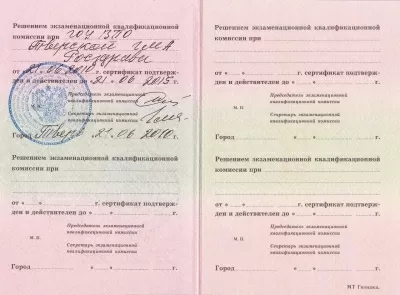 Решением экзаменационной квалификационной
комиссии при ГОУ ВПО
Тверской ГМА
Росздрава
от «21» 06 2010 г. сертификат подтверж-
ден и действителен до «21» 06 2015 г.
Председатель экзаменационной
квалификационной комиссии
Секретарь экзаменационной
квалификационной комиссии
Город Тверь 21.06 2010 г.
Решением экзаменационной квалификационной
комиссии при
от « » г. сертификат подтверж-
ден и действителен до « » г.
Председатель экзаменационной
квалификационной комиссии
М. П.
Секретарь экзаменационной
квалификационной комиссии
Город « » г.
Решением экзаменационной квалификационной
комиссии при
от « » г. сертификат подтверж-
ден и действителен до « » г.
Председатель экзаменационной
квалификационной комиссии
М. П.
Секретарь экзаменационной
квалификационной комиссии
Город « » г.
Решением экзаменационной квалификационной
комиссии при
от « » г. сертификат подтверж-
ден и действителен до « » г.
Председатель экзаменационной
квалификационной комиссии
М. П.
Секретарь экзаменационной
квалификационной комиссии
Город « » г.
МТ Гознака.